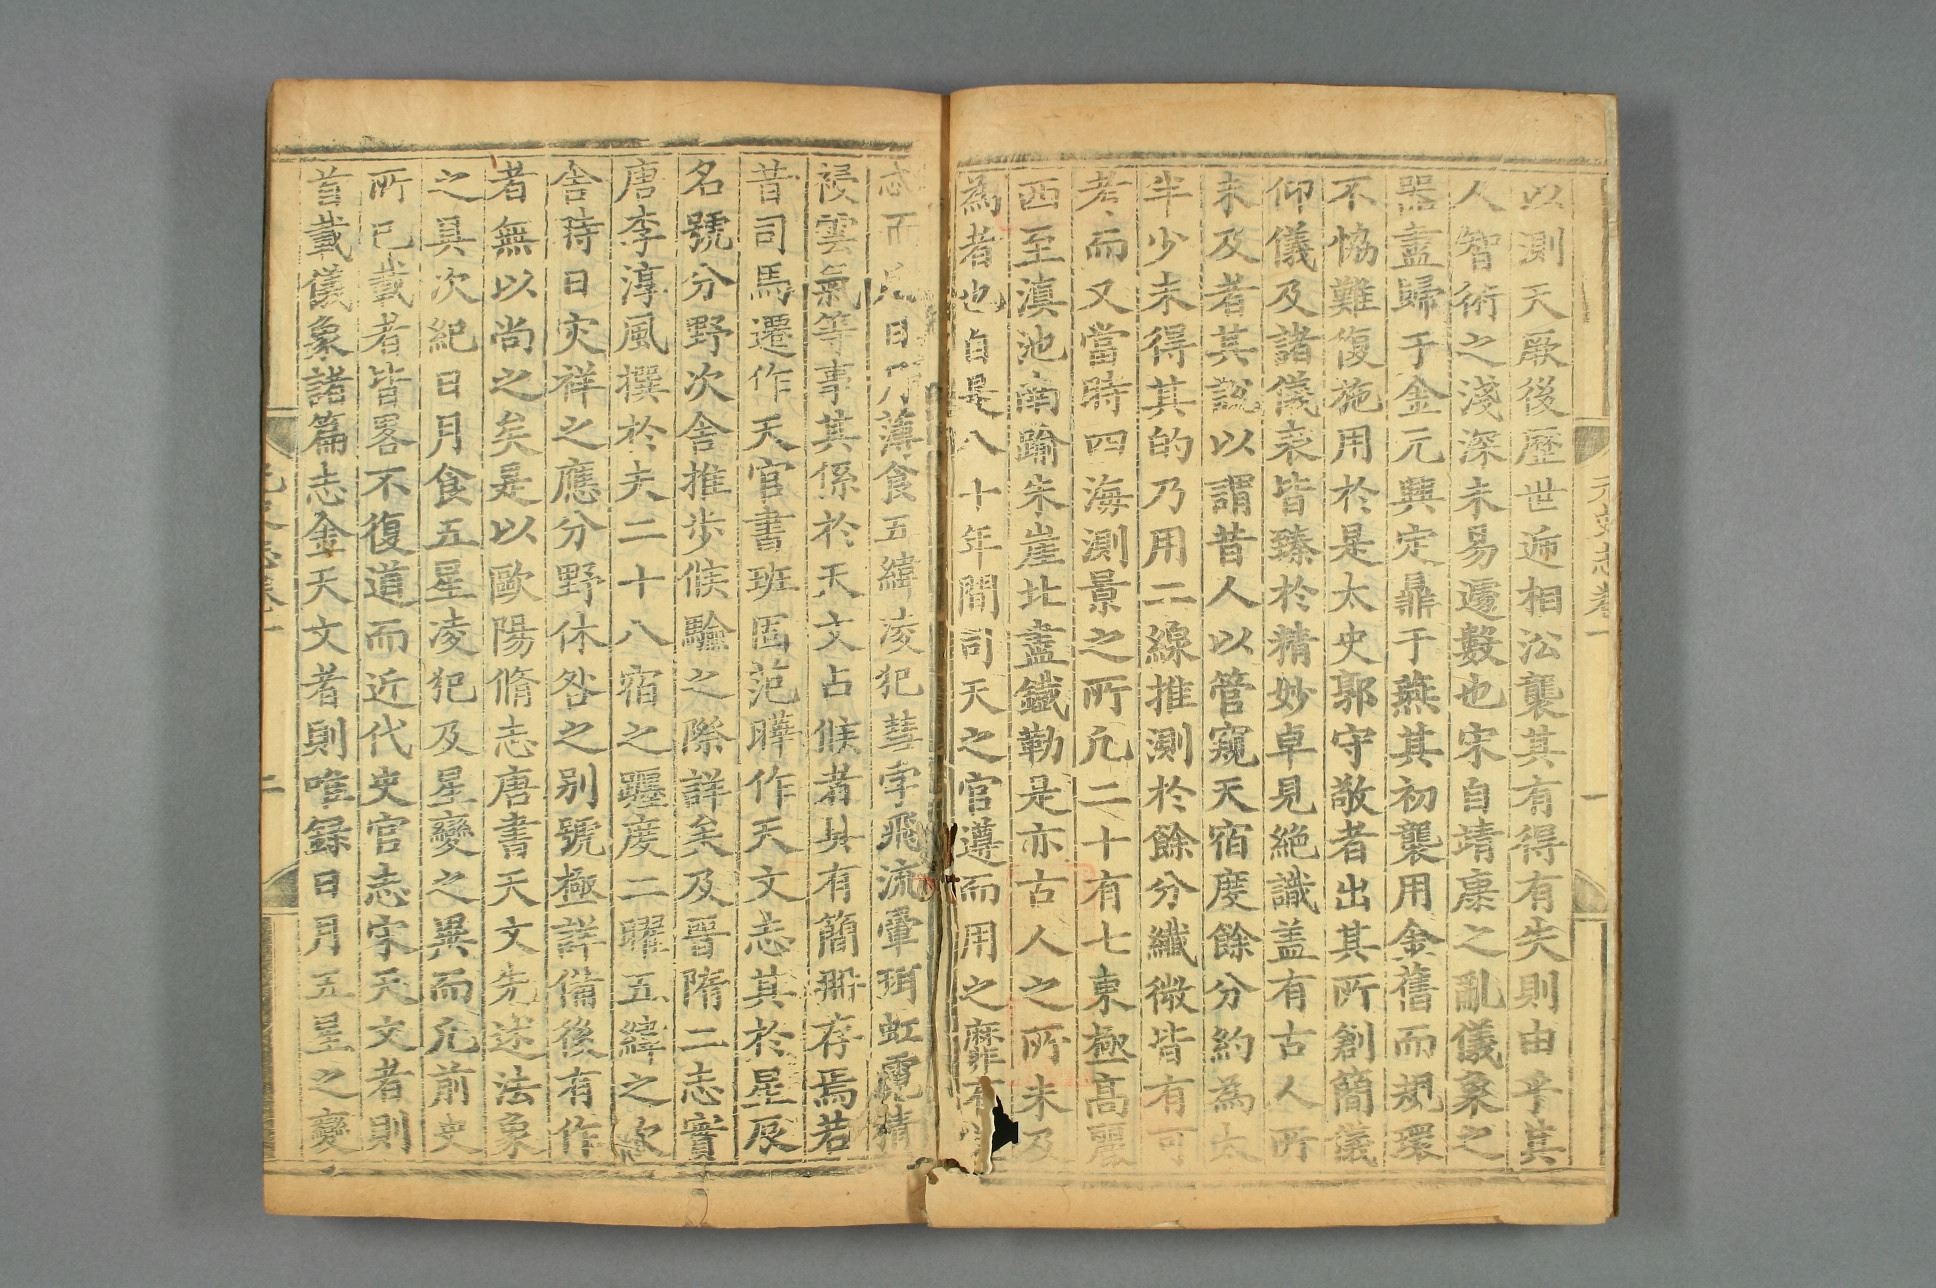 元史志卷一
一
以測天厥後歷世逓相沿襲其有得有失則由乎其
人智術之淺深未易遽數也宋自靖康之亂儀象之
器盡歸于金元興定鼎于燕其初襲用金舊而規環
不恊難復施用於是太史郭守敬者出其所創簡儀
仰儀及諸儀表皆臻於精妙卓見絶識盖有古人所
未及者其說以謂昔人以管窺天宿度餘分約為太
半少未得其的乃用二線推測於餘分纖微皆有可
考而又當時四海測景之所凢二十有七東極髙麗
西至滇池南踰朱崖北盡鐵勒是亦古人之所未及
為者也自是八十年間司天之官遵而用之靡有
志而凡日月薄食五緯凌犯彗孛飛流暈珥虹霓精
祲雲氣等事其係於天文占候者具有簡冊存焉若
昔司馬遷作天官書班固范曄作天文志其於星辰
名號分野次舍推步候驗之際詳矣及晉隋二志實
唐李淳風撰於夫二十八宿之躔度二曜五緯之次
舍時日灾祥之應分野休咎之别號極詳備後有作
者無以尚之矣是以歐陽脩志唐書天文先述法象
之具次紀日月食五星凌犯及星變之異而凢前史
所已載者皆畧不復道而近代史官志宋天文者則
首載儀象諸篇志金天文者則唯錄日月五星之變
元史志卷一
二